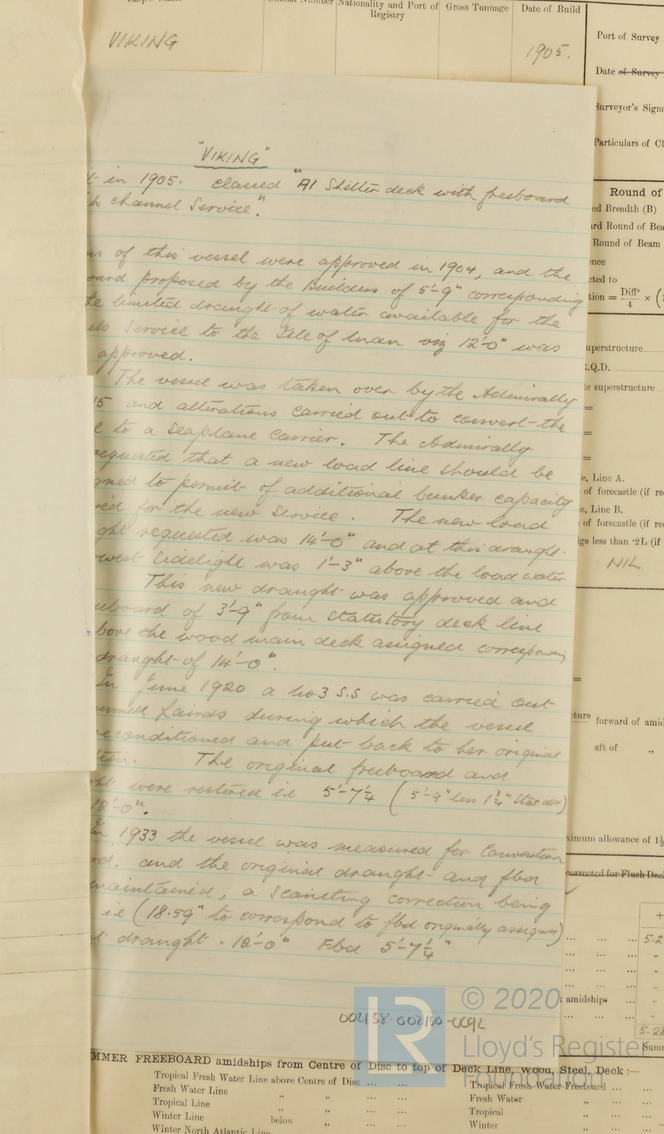 Nationality and Port of Registry
Gross Tonnage
Date of Build
VIKING
1905.
Port of Survey
Date of Survey
Surveyor's Sign
Particulars of Cl
"VIKING"
in 1905. Classed "A1 Shelter deck with freeboard
channel Service."
of this vessel were approved in 1904, and the
proposed by the Builders of 5'-9" corresponding
limited draught of water available for the
Service to the Isle of Man viz 12'-0" was
approved.
The vessel was taken over by the Admiralty
15 and alterations carried out to convert the
to a Seaplane Carrier. The Admiralty
requested that a new load line should be
to permit of additional bunker capacity
for the new Service. The new load
requested was 14'-0" and at this draught
Sidelight was 1'-3" above the load water
This new draught was approved and
of 3'-9" from Statutory deck line
above the wood main deck assigned corresponding
draught of 14'-0".
In June 1920 a No 3 S.S was carried out
Lairds during which the vessel
reconditioned and put back to her original
The original freeboard and
were restored i.e 5'-7¼ (5'-9" less 1¾"
12'-0".
In 1933 the vessel was measured for Convention
and the original draught and fbd
maintained, a Scantling correction being
i.e (18.59" to correspond to fbd originally assigned)
draught - 12'-0" Fbd 5'-7¼"
Round of
ed Breadth (B)
ard Round of Bea
Round of Beam
cted to
uperstructure
R.Q.D.
te superstructure
e, Line A.
of forecastle (if re
e, Line B.
of forecastle (if re
NIL
forward of ami
aft of "
ximum allowance of 1½
corrected for Flush Deck
amidships
Summ
© 2020
LR
Lloyd's Register
Foundation
002158-002180-0092
MMER FREEBOARD amidships from Centre of Disc to top of Deck Line, Wood, Steel, Deck :—
Tropical Fresh Water Line above Centre of Disc
Fresh Water Line " "
Tropical Line " "
Winter Line below "
Winter North Atlantic Line
Tropical Fresh Water Freeboard
Fresh Water "
Tropical "
Winter "